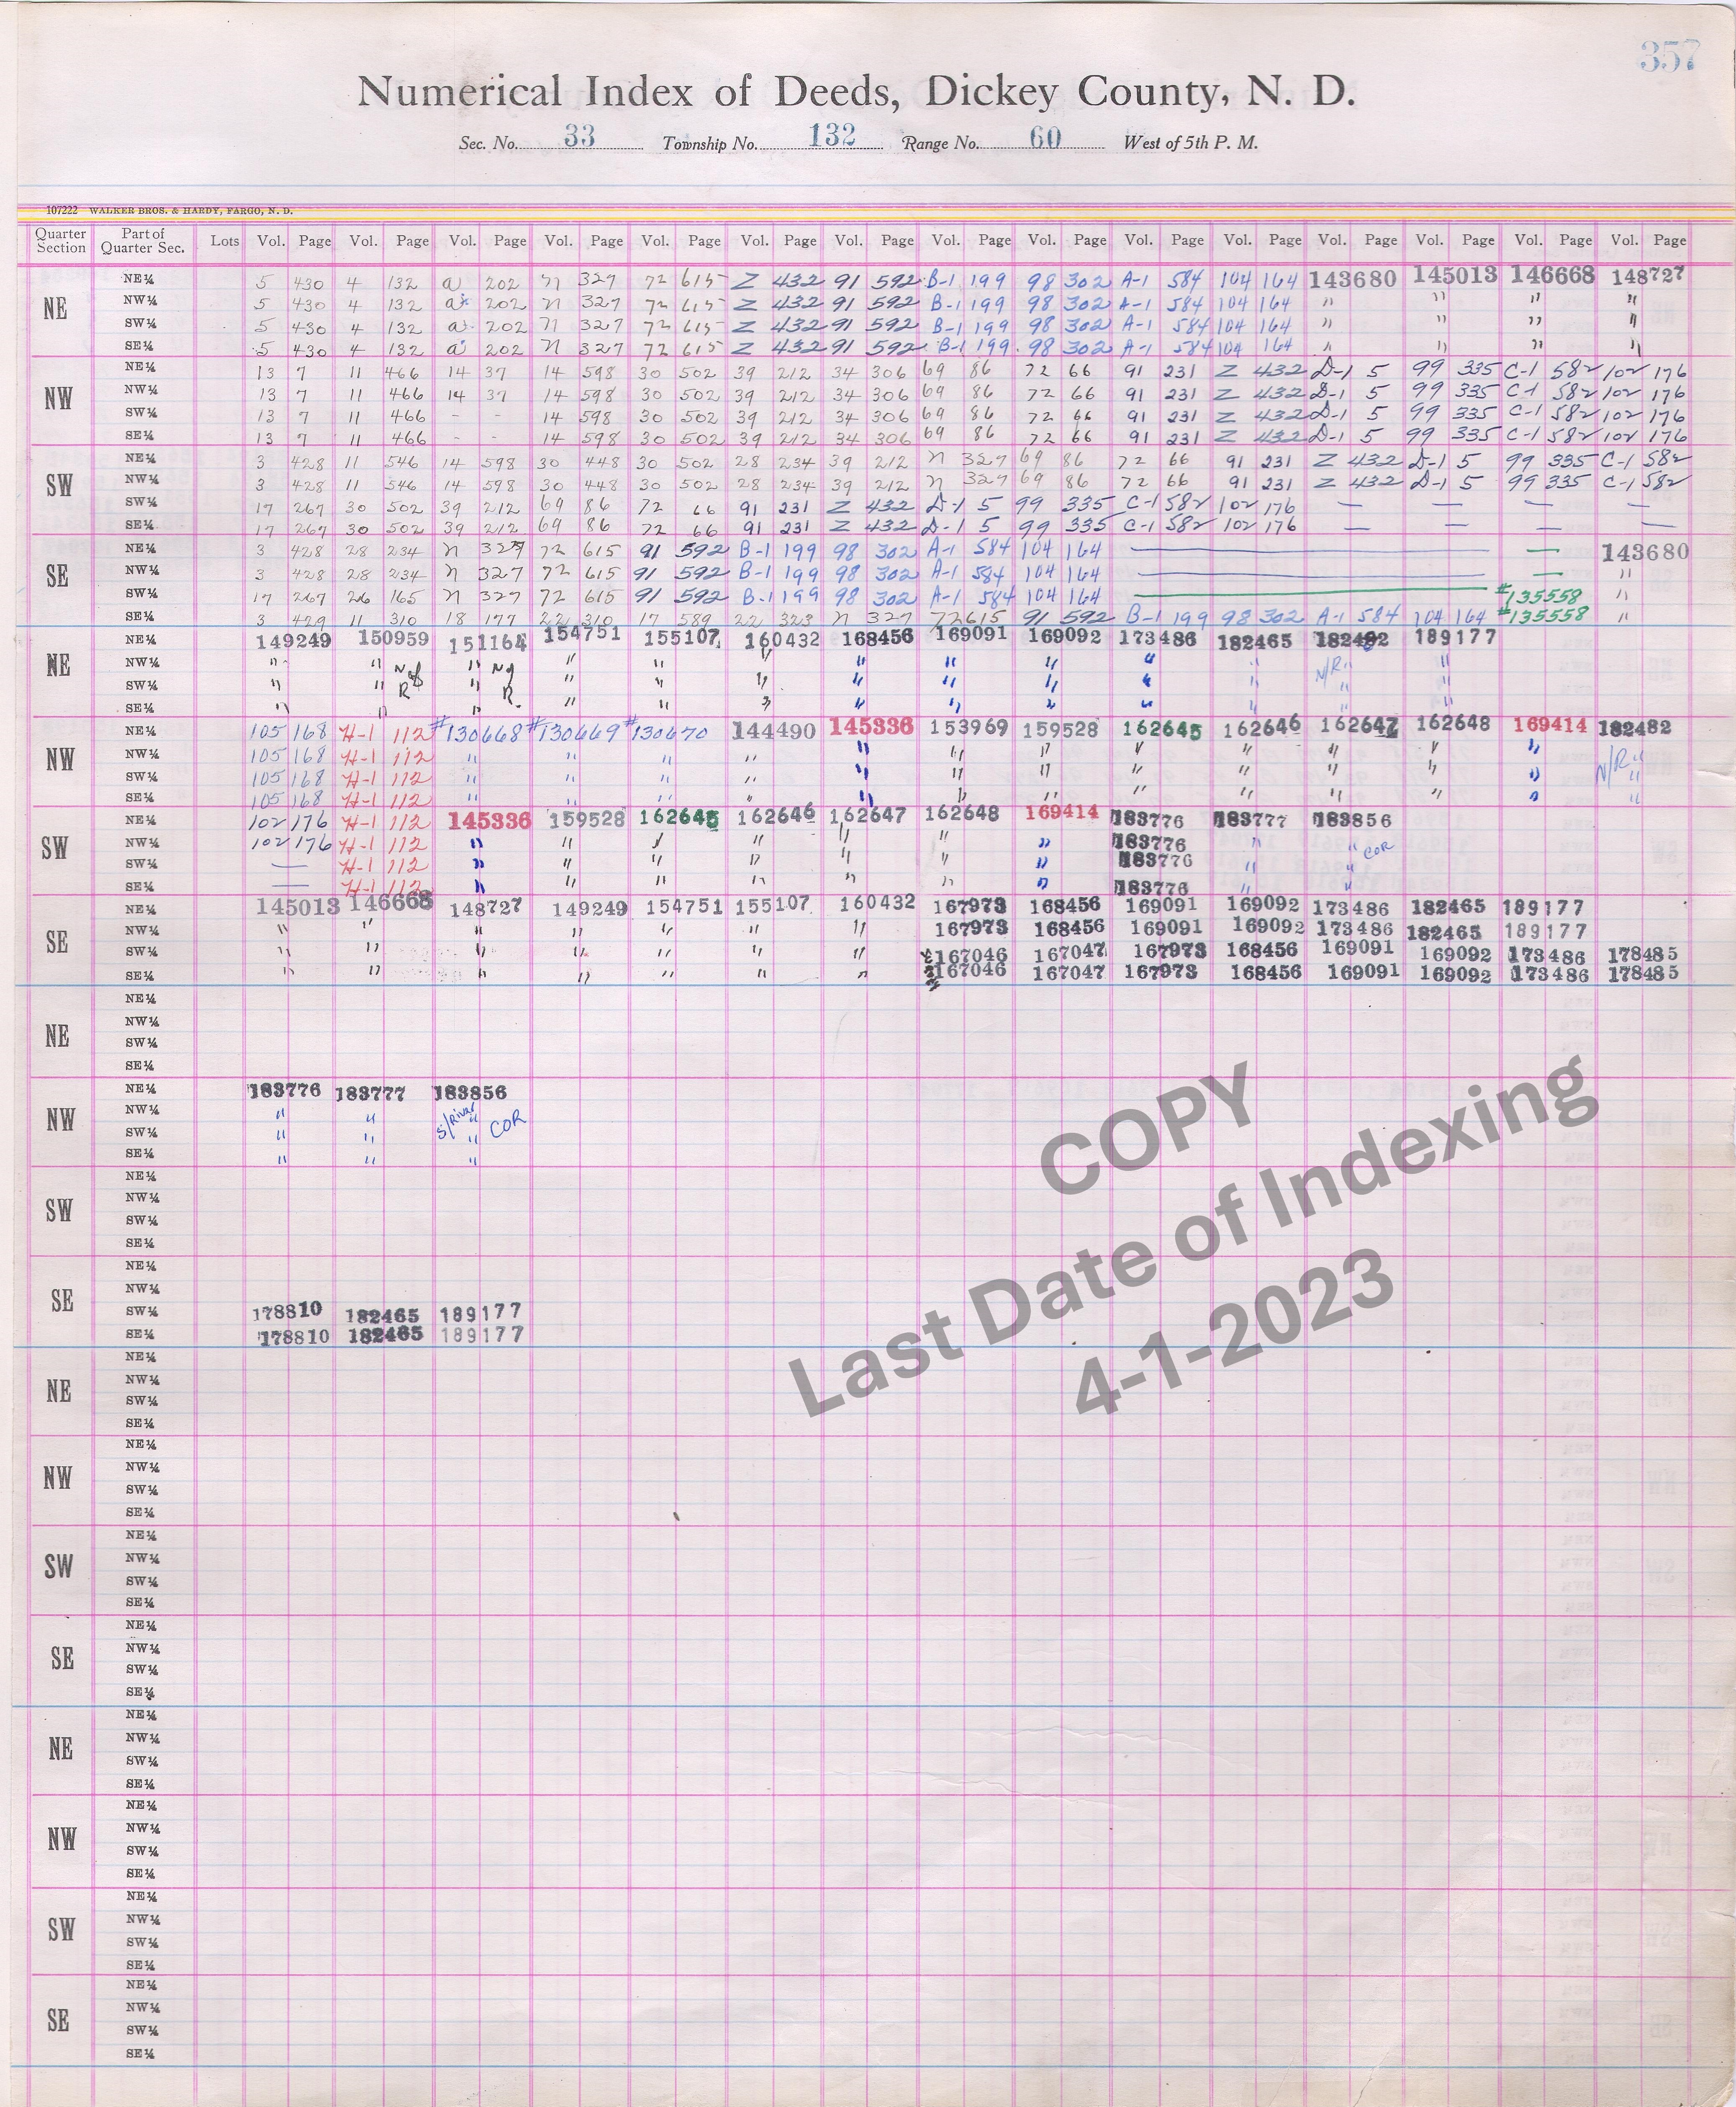 357
Numerical Index of Deeds, Dickey County, N. D.
Sec. No. 33 Township No. 132 Range No. 60 West of 5th P. M.
107222 WALKER BROS. & HARDY, FARGO, N. D.
Quarter Section Part of Quarter Sec. Lots Vol. Page Vol. Page Vol. Page Vol. Page Vol. Page Vol. Page Vol. Page Vol. Page Vol. Page Vol. Page Vol. Page Vol. Page Vol. Page Vol. Page Vol. Page
NE
NE¼ 5 430 4 132 a 202 n 327 72 615 Z 432 91 592 B-1 199 98 302 A-1 584 104 164 143680 145013 146668 148727
NW¼ 5 430 4 132 a 202 n 327 72 615 Z 432 91 592 B-1 199 98 302 A-1 584 104 164 " " " "
SW¼ 5 430 4 132 a 202 n 327 72 615 Z 432 91 592 B-1 199 98 302 A-1 584 104 164 " " " "
SE¼ 5 430 4 132 a 202 n 327 72 615 Z 432 91 592 B-1 199 98 302 A-1 584 104 164 " " " "
NW
NE¼ 13 7 11 466 14 37 14 598 30 502 39 212 34 306 69 86 72 66 91 231 Z 432 D-1 5 99 335 C-1 582 102 176
NW¼ 13 7 11 466 14 37 14 598 30 502 39 212 34 306 69 86 72 66 91 231 Z 432 D-1 5 99 335 C-1 582 102 176
SW¼ 13 7 11 466 - - 14 598 30 502 39 212 34 306 69 86 72 66 91 231 Z 432 D-1 5 99 335 C-1 582 102 176
SE¼ 13 7 11 466 - - 14 598 30 502 39 212 34 306 69 86 72 66 91 231 Z 432 D-1 5 99 335 C-1 582 102 176
SW
NE¼ 3 428 11 546 14 598 30 448 30 502 28 234 39 212 n 327 69 86 72 66 91 231 Z 432 D-1 5 99 335 C-1 582
NW¼ 3 428 11 546 14 598 30 448 30 502 28 234 39 212 n 327 69 86 72 66 91 231 Z 432 D-1 5 99 335 C-1 582
SW¼ 17 267 30 502 39 212 69 86 72 66 91 231 Z 432 D-1 5 99 335 C-1 582 102 176 — — — —
SE¼ 17 267 30 502 39 212 69 86 72 66 91 231 Z 432 D-1 5 99 335 C-1 582 102 176 — — — —
SE
NE¼ 3 428 28 234 n 327 72 615 91 592 B-1 199 98 302 A-1 584 104 164 — — 143680
NW¼ 3 428 28 234 n 327 72 615 91 592 B-1 199 98 302 A-1 584 104 164 — — "
SW¼ 17 267 26 165 n 327 72 615 91 592 B-1 199 98 302 A-1 584 104 164 — #135558 "
SE¼ 3 429 11 310 18 177 22 310 17 589 22 323 n 327 72 615 91 592 B-1 199 98 302 A-1 584 104 164 #135558 "
NE
NE¼ 149249 150959 151164 154751 155107 160432 168456 169091 169092 173486 182465 182482 189177
NW¼ " " " " " " " " " " " N/R " "
SW¼ " " R " R " " " " " " " " " "
SE¼ " " " " " " " " " " " " "
NW
NE¼ 105 168 H-1 112 #130668 #130669 #130670 144490 145336 153969 159528 162645 162646 162647 162648 169414 182482
NW¼ 105 168 H-1 112 " " " " " " " " " " " " "
SW¼ 105 168 H-1 112 " " " " " " " " " " " " N/R "
SE¼ 105 168 H-1 112 " " " " " " " " " " " " "
SW
NE¼ 102 176 H-1 112 145336 159528 162645 162646 162647 162648 169414 183776 183777 183856
NW¼ 102 176 H-1 112 " " " " " " " 183776 " " COR
SW¼ — H-1 112 " " " " " " " 183776 " "
SE¼ — H-1 112 " " " " " " " 183776 " "
SE
NE¼ 145013 146668 148727 149249 154751 155107 160432 167973 168456 169091 169092 173486 182465 189177
NW¼ " " " " " " " 167973 168456 169091 169092 173486 182465 189177
SW¼ " " " " " " " 167046 167047 167973 168456 169091 169092 173486 178485
SE¼ " " " " " " " 167046 167047 167973 168456 169091 169092 173486 178485
NE
NE¼
NW¼
SW¼
SE¼
NW
NE¼ 183776 183777 183856
NW¼ " " S/River "
SW¼ " " " COR
SE¼ " " "
SW
NE¼
NW¼
SW¼
SE¼
SE
NE¼
NW¼
SW¼ 178810 182465 189177
SE¼ 178810 182465 189177
COPY
Last Date of Indexing
4-1-2023
NE
NE¼
NW¼
SW¼
SE¼
NW
NE¼
NW¼
SW¼
SE¼
SW
NE¼
NW¼
SW¼
SE¼
SE
NE¼
NW¼
SW¼
SE¼
NE
NE¼
NW¼
SW¼
SE¼
NW
NE¼
NW¼
SW¼
SE¼
SW
NE¼
NW¼
SW¼
SE¼
SE
NE¼
NW¼
SW¼
SE¼